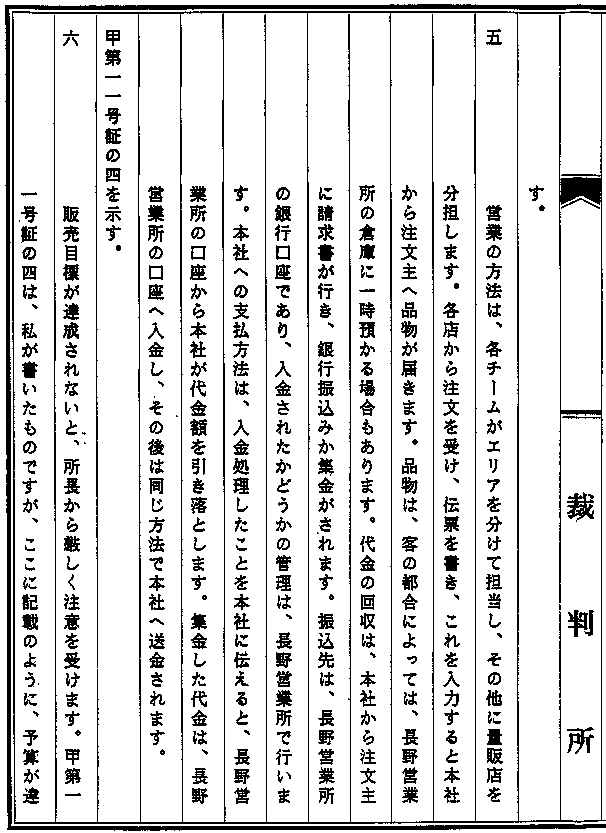 裁判所
す。
五　営業の方法は、各チームがエリアを分けて担当し、その他に量販店を
分担します。各店から注文を受け、伝票を書き、これを入力すると本社
から注文主へ品物が届きます。品物は、客の都合によっては、長野営業
所の倉庫に一時預かる場合もあります。代金の回収は、本社から注文主
に請求書が行き、銀行振込みか集金がされます。振込先は、長野営業所
の銀行口座であり、入金されたかどうかの管理は、長野営業所で行いま
す。本社への支払方法は、入金処理したことを本社に伝えると、長野営
業所の口座から本社が代金額を引き落とします。集金した代金は、長野
営業所の口座へ入金し、その後は同じ方法で本社へ送金されます。
甲第一一号証の四を示す。
六　販売目標が達成されないと、所長から厳しく注意を受けます。甲第一
一号証の四は、私が書いたものですが、ここに記載のように、予算が達